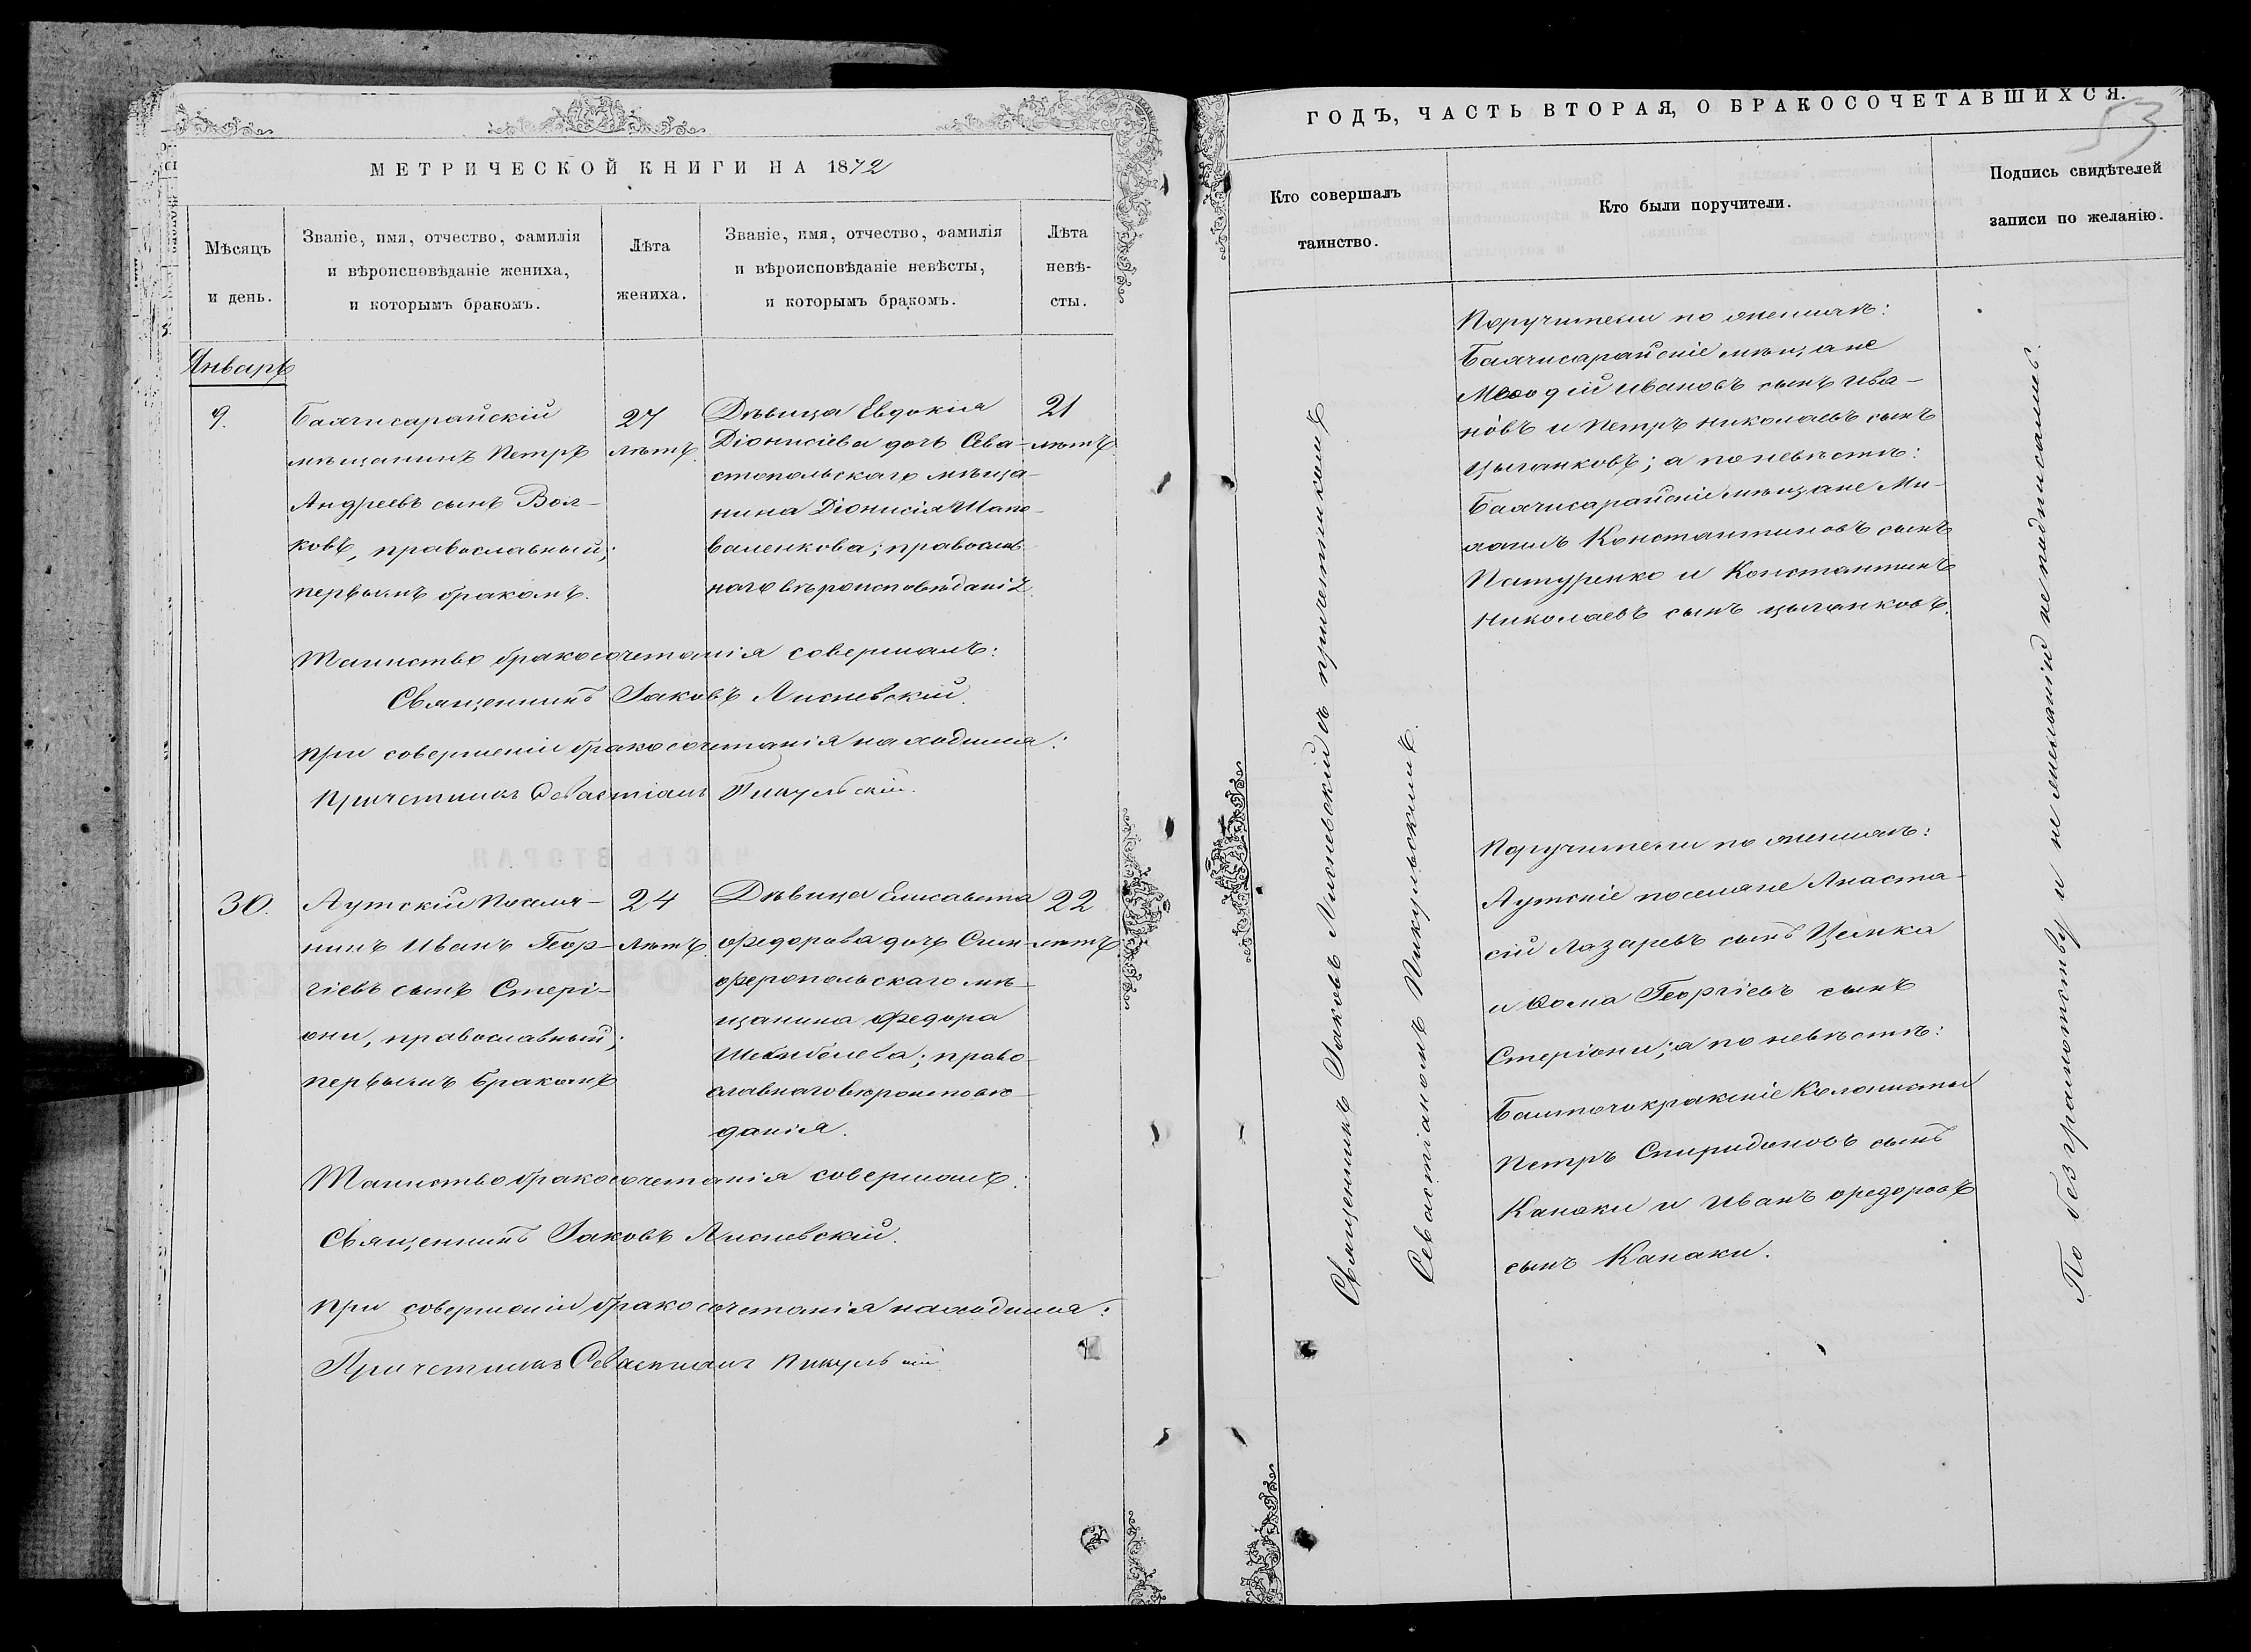 МЕТРИЧЕСКОЙ КНИГИ НА 1872
Мѣсяцъ
и день.
Званіе, имя, отчество, фамилія
и вѣроисповѣданіе жениха,
и которымъ бракомъ.
Лѣта
жениха.
Званіе, имя, отчество, фамилія
и вѣроисповѣданіе невѣсты,
и которымъ бракомъ.
Лѣта
невѣ-
сты.
Январь
9.
Бахчисарайскій
мѣщанинъ Петръ
Андреевъ сынъ Вол-
ковъ, православный;
первымъ бракомъ.
27
лѣтъ.
Дѣвица Евдокія
Діонисіева дочь Сева-
стопольскаго мѣща-
нина Діонисія Шапо-
валенкова; православ-
наго вѣроисповѣданія.
21
лѣтъ
Таинство бракосочетанія совершалъ:
Священникъ Іаковъ Лисневскій.
при совершеніи бракосочетанія находился:
Причетникъ Севастіанъ Пикульскій.
30.
Аутскій Поселя-
нинъ Иванъ Геор-
гіевъ сынъ Стері-
они, православный;
первымъ бракомъ
24
лѣтъ.
Дѣвица Елисавета
Федорова дочь Сим-
феропольскаго мѣ-
щанина Федора
право-
славнаго вѣроисповѣ-
данія.
22
лѣтъ.
Таинство бракосочетанія совершалъ:
Священникъ Іаковъ Лисневскій.
при совершеніи бракосочетанія находился:
Причетникъ Севастіанъ Пикульскій.
ГОДЪ, ЧАСТЬ ВТОРАЯ, О БРАКОСОЧЕТАВШИХСЯ.
53
Кто совершалъ
таинство.
Кто были поручители.
Подпись свидѣтелей
записи по желанію.
Священникъ Іаковъ Лисневскій съ причетникомъ
Севастіаномъ Пикульскимъ.
Поручители по женихѣ:
Бахчисарайскіе мѣщане
Меѳодій Ивановъ сынъ Ива-
новъ и Петръ Николаевъ сынъ
Цыганковъ; а по невѣстѣ:
Бахчисарайскіе мѣщане Ми-
хаилъ Константиновъ сынъ
Патуренко и Константинъ
Николаевъ сынъ Цыганковъ.
Поручители по женихѣ:
Аутскіе поселяне Анаста-
сій Лазаревъ сынъ Целика
и Ѳома Георгіевъ сынъ
Стеріони; а по невѣстѣ:
Балтачокракскіе Колонисты
Петръ Спиридоновъ сынъ
Канаки и Иванъ Федоровъ
сынъ Канаки.
По безграмотству и не желанію не подписались.